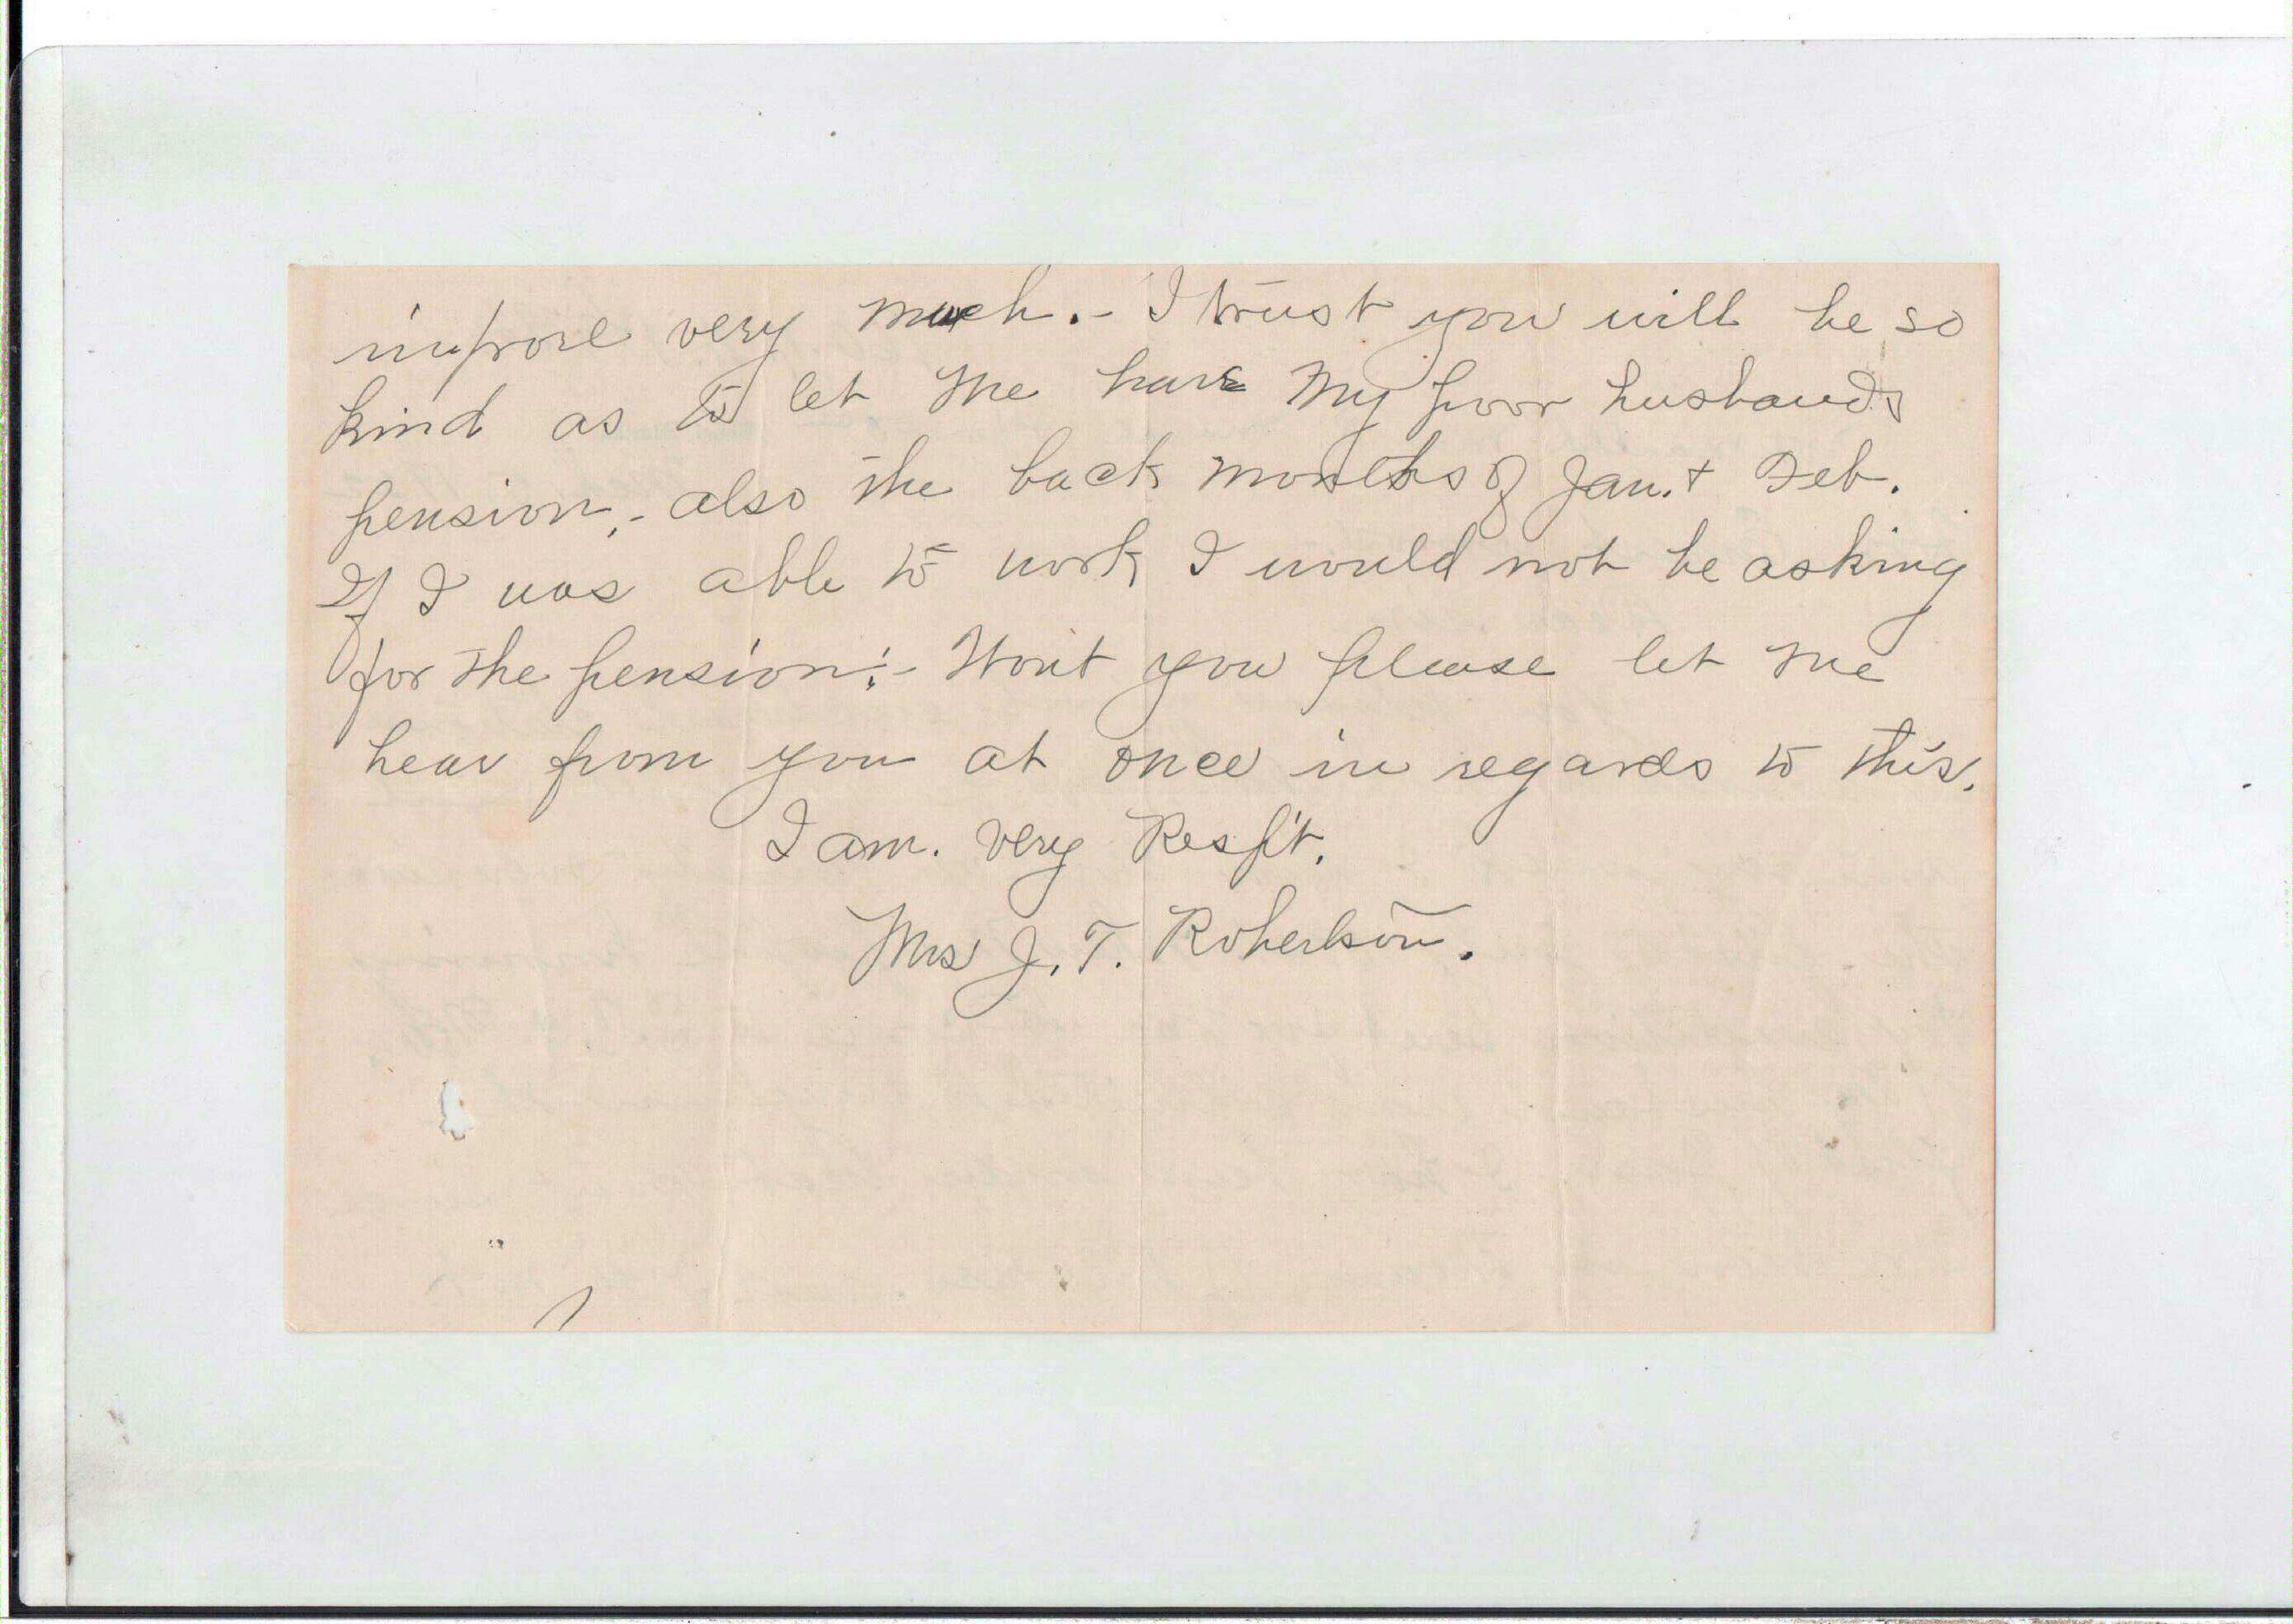 improve very much. - I trust you will be so
kind as to let me have my poor husbands
pension, - also the back months of Jan. + Feb.
If I was able to work I would not be asking
for the pension: - Wont you please let me
hear from you at once in regards to this.
I am. very Resp't.
Mrs J. T. Robertson.